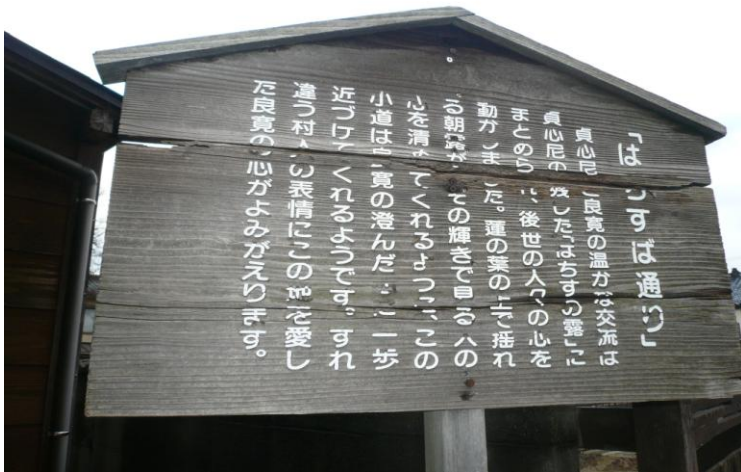 「はちすば通り」
貞心尼と良寛の温かな交流は
貞心尼の残した「はちすの露」に
まとめられ、後世の人々の心を
動かしました。蓮の葉の上で揺れ
る朝露がその輝きで見る人の
心を清めてくれるように、この
小道は良寛の澄んだ心に一歩
近づけてくれるようです。すれ
違う村人の表情にこの地を愛し
た良寛の心がよみがえります。